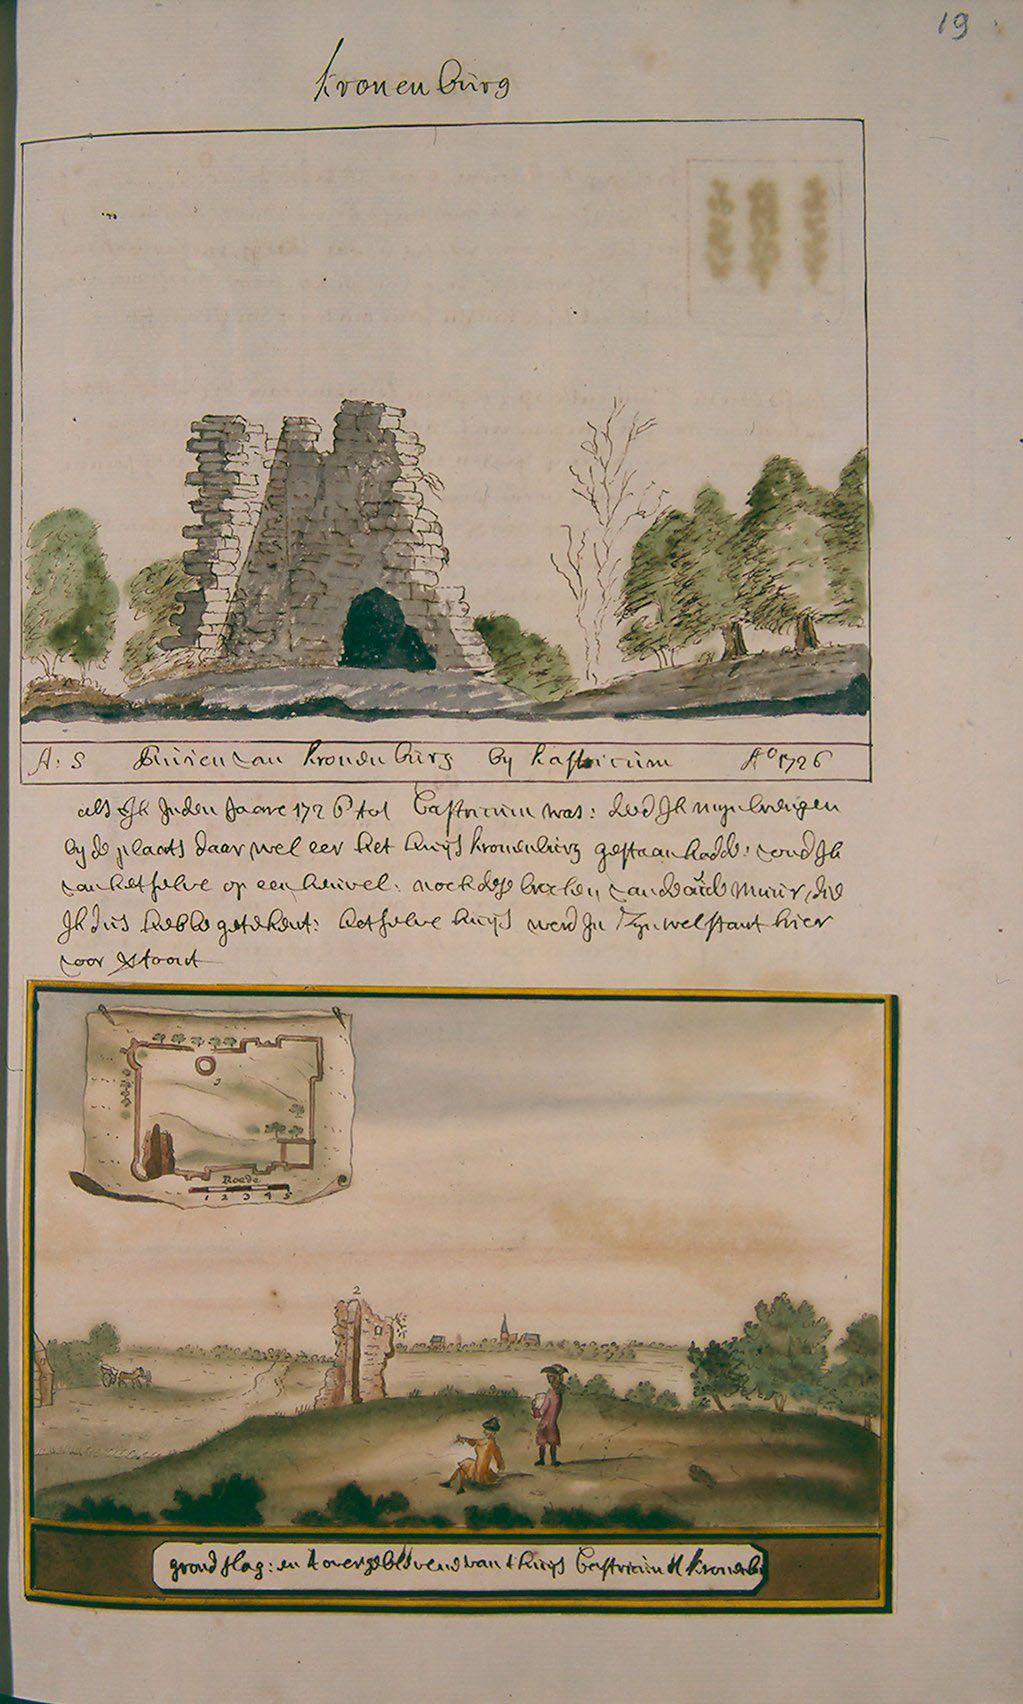 19
kronenburg
A: S Ruinen van kronenburg by kastricum Aº 1726
als Ik Inden Jaare 1726 tot Castricum was: ded Ik myn brengen
by de plaats daar wel eer het huijs kronenburg gestaan hadde: vond Ik
van het selve op een heuvel: noch dese brocken van de oude Muur, die
Ik dus hebbe getekent: het selve huijs werd In Zyn welstant hier
voor getoont
3
Roede
1 2 3 4 5
2
grondslag: en t overgeblevene van t huijs Castricum of kronenb